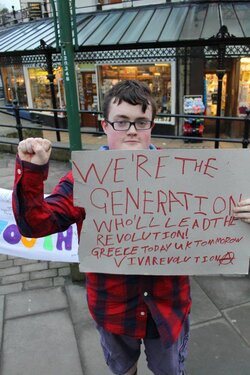 WE'RE THE
GENERATION
WHO'LL LEAD THE
REVOLUTION!
GREECE TODAY UK TOMORROW
VIVA REVOLUTION
OUTH